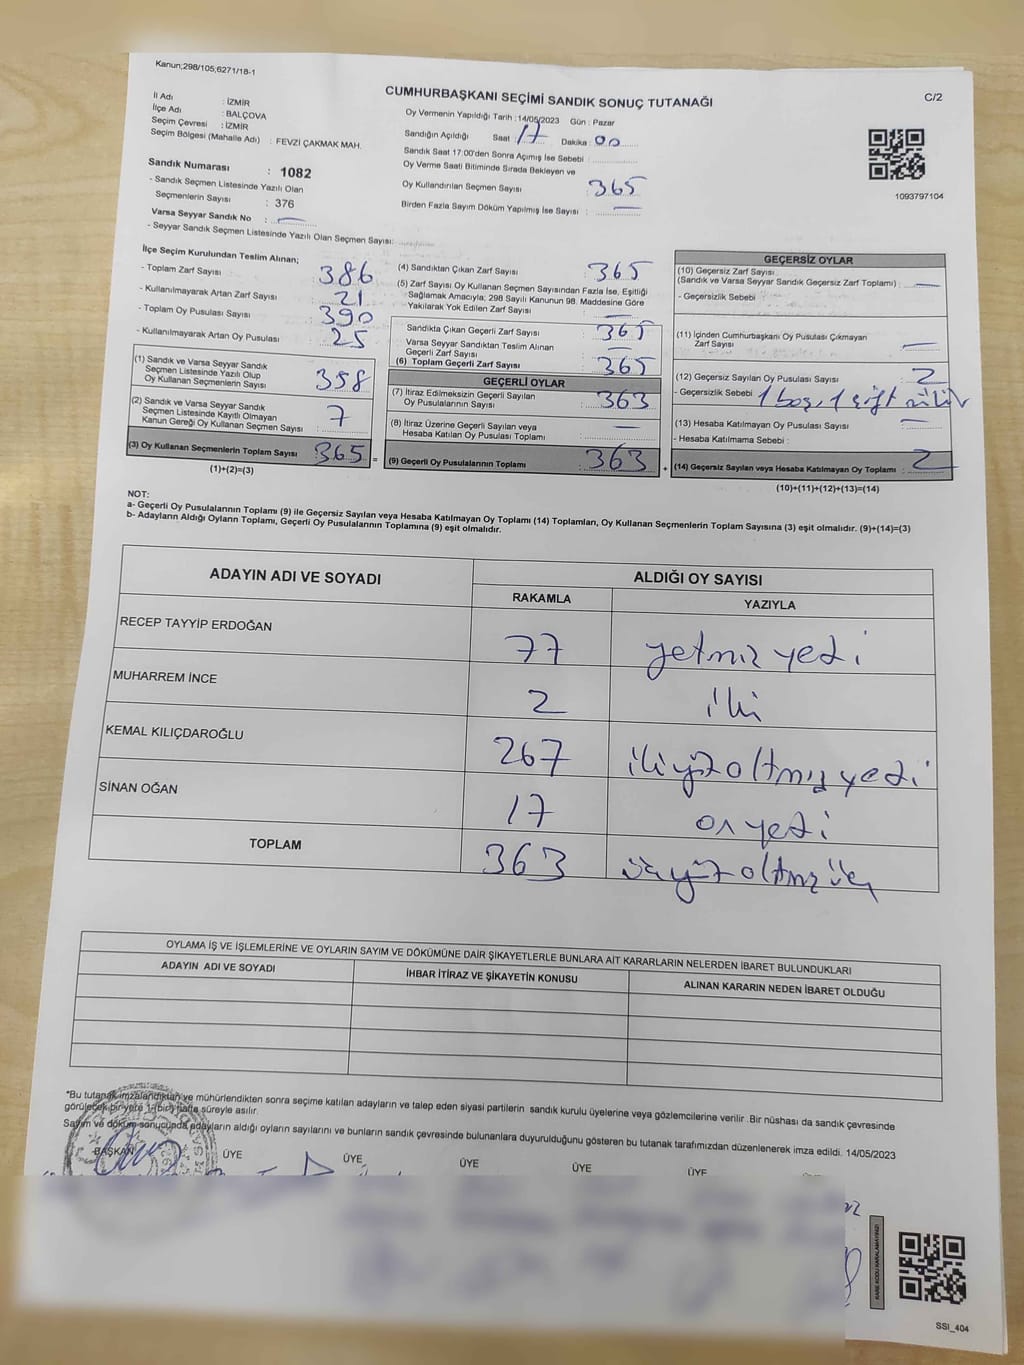 Kanun;298/105;6271/18-1
C/2
CUMHURBAŞKANI SEÇİMİ SANDIK SONUÇ TUTANAĞI
İl Adı : İZMİR
İlçe Adı : BALÇOVA
Seçim Çevresi : İZMİR
Seçim Bölgesi (Mahalle Adı) : FEVZİ ÇAKMAK MAH.
Sandık Numarası : 1082
- Sandık Seçmen Listesinde Yazılı Olan
Seçmenlerin Sayısı : 376
Varsa Seyyar Sandık No : —
- Seyyar Sandık Seçmen Listesinde Yazılı Olan Seçmen Sayısı:
Oy Vermenin Yapıldığı Tarih :14/05/2023 Gün : Pazar
Sandığın Açıldığı Saat : 17 Dakika : 00
Sandık Saat 17:00'den Sonra Açımış İse Sebebi :
Oy Verme Saati Bitiminde Sırada Bekleyen ve
Oy Kullandırılan Seçmen Sayısı : 365
Birden Fazla Sayım Döküm Yapılmış İse Sayısı : —
1093797104
İlçe Seçim Kurulundan Teslim Alınan;
- Toplam Zarf Sayısı 386
- Kullanılmayarak Artan Zarf Sayısı : 21
- Toplam Oy Pusulası Sayısı 390
- Kullanılmayarak Artan Oy Pusulası : 25
(1) Sandık ve Varsa Seyyar Sandık
Seçmen Listesinde Yazılı Olup
Oy Kullanan Seçmenlerin Sayısı : 358
(2) Sandık ve Varsa Seyyar Sandık
Seçmen Listesinde Kayıtlı Olmayan
Kanun Gereği Oy Kullanan Seçmen Sayısı : 7
(3) Oy Kullanan Seçmenlerin Toplam Sayısı : 365 =
(1)+(2)=(3)
(4) Sandıktan Çıkan Zarf Sayısı : 365
(5) Zarf Sayısı Oy Kullanan Seçmen Sayısından Fazla İse, Eşitliği
Sağlamak Amacıyla; 298 Sayılı Kanunun 98. Maddesine Göre
Yakılarak Yok Edilen Zarf Sayısı : —
Sandıkta Çıkan Geçerli Zarf Sayısı : 365
Varsa Seyyar Sandıktan Teslim Alınan
Geçerli Zarf Sayısı : —
(6) Toplam Geçerli Zarf Sayısı : 365
GEÇERLİ OYLAR
(7) İtiraz Edilmeksizin Geçerli Sayılan
Oy Pusulalarının Sayısı : 363
(8) İtiraz Üzerine Geçerli Sayılan veya
Hesaba Katılan Oy Pusulası Toplamı : —
(9) Geçerli Oy Pusulalarının Toplamı : 363 +
GEÇERSİZ OYLAR
(10) Geçersiz Zarf Sayısı
(Sandık ve Varsa Seyyar Sandık Geçersiz Zarf Toplamı) : —
- Geçersizlik Sebebi :
(11) İçinden Cumhurbaşkanı Oy Pusulası Çıkmayan
Zarf Sayısı : —
(12) Geçersiz Sayılan Oy Pusulası Sayısı : 2
- Geçersizlik Sebebi : 1 boş, 1 çift
(13) Hesaba Katılmayan Oy Pusulası Sayısı : —
- Hesaba Katılmama Sebebi :
(14) Geçersiz Sayılan veya Hesaba Katılmayan Oy Toplamı : 2
(10)+(11)+(12)+(13)=(14)
NOT:
a- Geçerli Oy Pusulalarının Toplamı (9) ile Geçersiz Sayılan veya Hesaba Katılmayan Oy Toplamı (14) Toplamları, Oy Kullanan Seçmenlerin Toplam Sayısına (3) eşit olmalıdır. (9)+(14)=(3)
b- Adayların Aldığı Oyların Toplamı, Geçerli Oy Pusulalarının Toplamına (9) eşit olmalıdır.
ADAYIN ADI VE SOYADI ALDIĞI OY SAYISI
RAKAMLA YAZIYLA
RECEP TAYYİP ERDOĞAN 77 yetmiş yedi
MUHARREM İNCE 2 iki
KEMAL KILIÇDAROĞLU 267 ikiyüz altmış yedi
SİNAN OĞAN 17 on yedi
TOPLAM 363 üçyüz altmış üç
OYLAMA İŞ VE İŞLEMLERİNE VE OYLARIN SAYIM VE DÖKÜMÜNE DAİR ŞİKAYETLERLE BUNLARA AİT KARARLARIN NELERDEN İBARET BULUNDUKLARI
ADAYIN ADI VE SOYADI İHBAR İTİRAZ VE ŞİKAYETİN KONUSU ALINAN KARARIN NEDEN İBARET OLDUĞU
*Bu tutanak imzalandıktan ve mühürlendikten sonra seçime katılan adayların ve talep eden siyasi partilerin sandık kurulu üyelerine veya gözlemcilerine verilir. Bir nüshası da sandık çevresinde
görülecek bir yere 1 (bir) hafta süreyle asılır.
Sayım ve döküm sonucunda adayların aldığı oyların sayılarını ve bunların sandık çevresinde bulunanlara duyurulduğunu gösteren bu tutanak tarafımızdan düzenlenerek imza edildi. 14/05/2023
BAŞKAN ÜYE ÜYE ÜYE ÜYE ÜYE
SSI_404